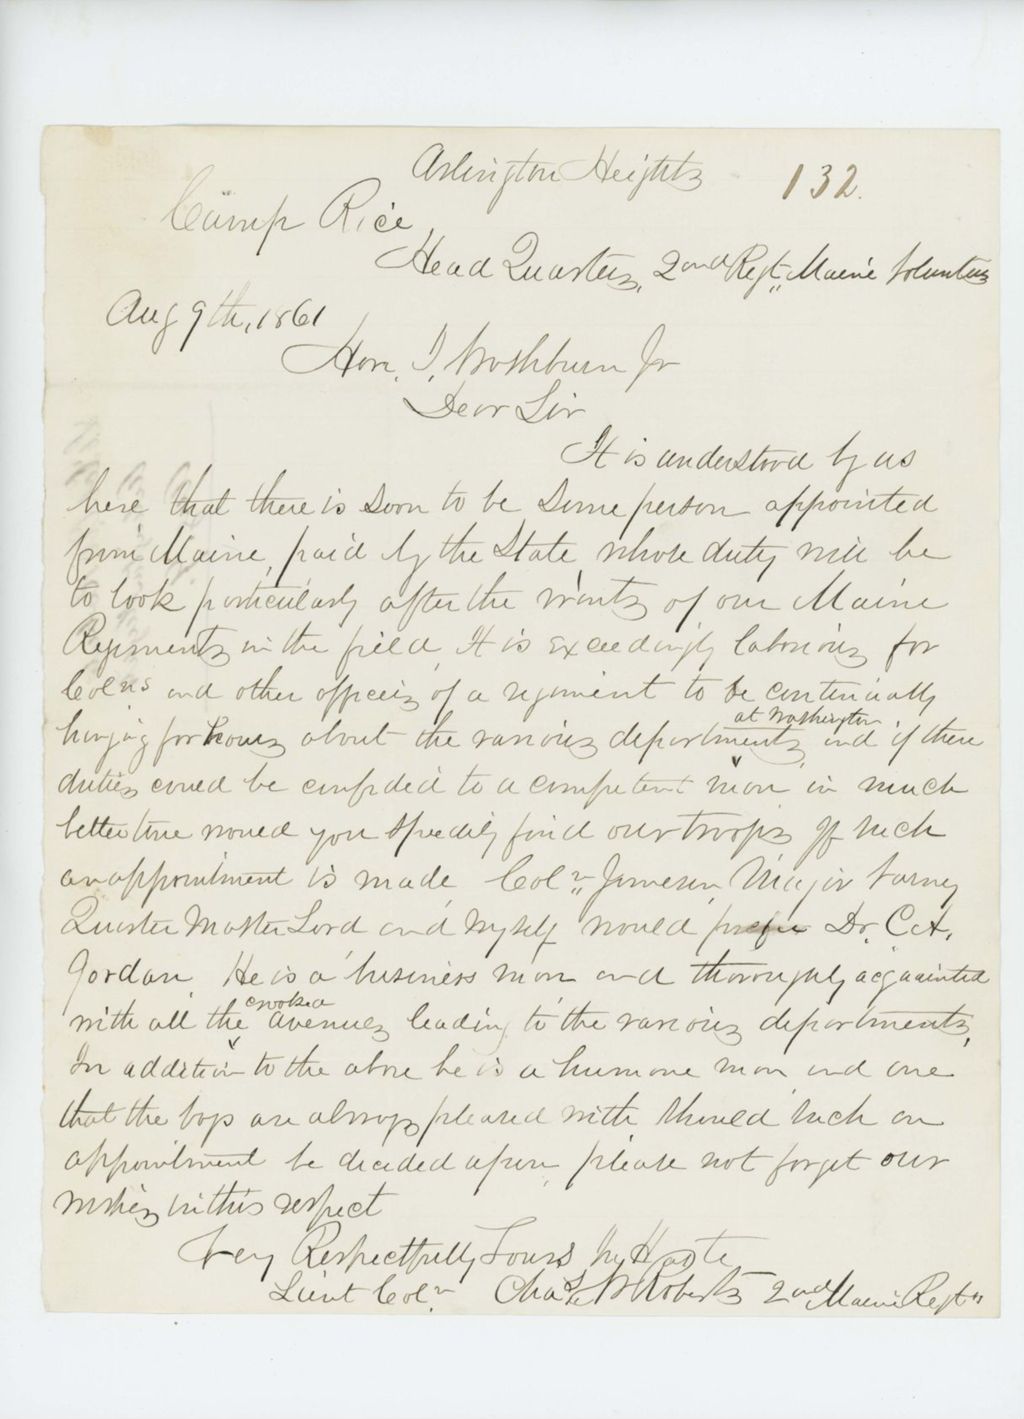 Arlington Heights 132.
Camp Rice,
Head Quarters, 2nd Regt,, Maine Volunters
Aug 9th, 1861
Hon. I, Washburn Jr
Dear Sir
It is understood by us
here that there is soon to be some person appointed
from Maine, paid by the State, whose duty will be
to look particularly after the wants of our Maine
Regiments in the field, It is exceedingly laborious for
Colns and other officers of a regiment to be continually
at Washington
hanging for hours about the various departments, and if these
duties could be confided to a competent man in much
better time would you speedily find our troops If such
an appointment is made Coln,, Jameson, Major Varney
Quarter Master Lord and myself would prefer Dr. C.A.
Jordan. He is a business man and thoroughly acquainted
crooked
with all the avenues leading to the various departments,
In addition to the above he is a humane man and one
that the boys are always pleased with Should such an
appointment be decided upon, please not forget our
wishes in this respect
Very Respectfully Yours In Haste
Lieut Coln Chas W Roberts 2nd Maine Regt"